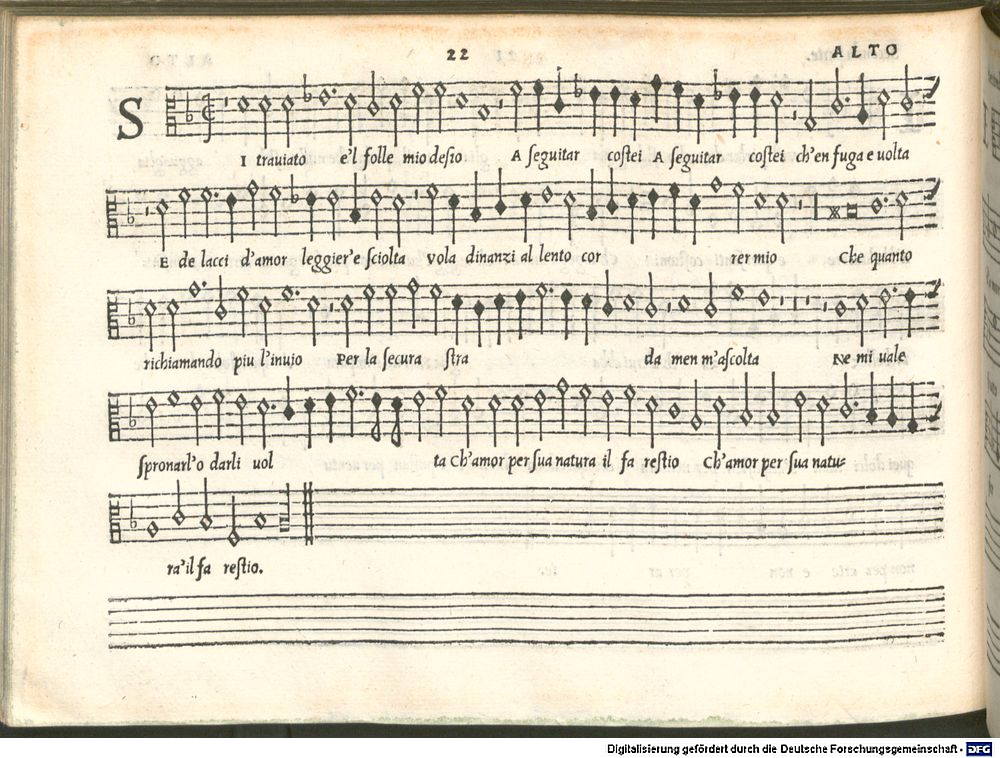 22 ALTO
S I trauiato e'l folle mio desio A seguitar costei A seguitar costei ch'en fuga e uolta
E de lacci d'amor leggier'e sciolta vola dinanzi al lento cor rer mio che quanto
richiamando piu l'inuio Per la secura stra da men m'ascolta Ne mi uale
spronarl'o darli uol ta Ch'amor per sua natura il fa restio Ch'amor per sua natu-
ra'il fa restio.
Digitalisierung gefördert durch die Deutsche Forschungsgemeinschaft - DFG